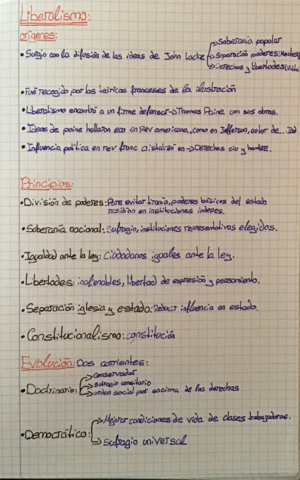 Liberalismo:
Orígenes:
• Surgio con la difusión de las ideas de John Locke
→ Soberanía popular
→ Separación poderes:
→ Derechos y libertades
• Fue recogido por los teóricos franceses de la ilustración
• Liberalismo encontró a un firme defensor → Thomas Paine con sus obras.
• Ideas de paine hallaron eco en Rev americana, como en Jefferson, autor de
• Influencia política en rev franc cristalizó en → Derechos ciu y hombre.
Principios:
• División de poderes: Para evitar tiranía, poderes básicos del estado
residían en instituciones indepes.
• Soberanía nacional: Sufragio, instituciones representativas elegidas.
• Igualdad ante la ley: Ciudadanos iguales ante la ley.
• Libertades: inalienables, libertad de expresión y pensamiento.
• Separación iglesia y estado: Reducir influencia en estado.
• Constitucionalismo: constitución
Evolución: Dos corrientes:
• Doctrinario:
→ conservador
→ sufragio censitario
→ orden social por encima de los derechos
• Democrática:
→ Mejorar condiciones de vida de clases trabajadoras.
→ sufragio universal